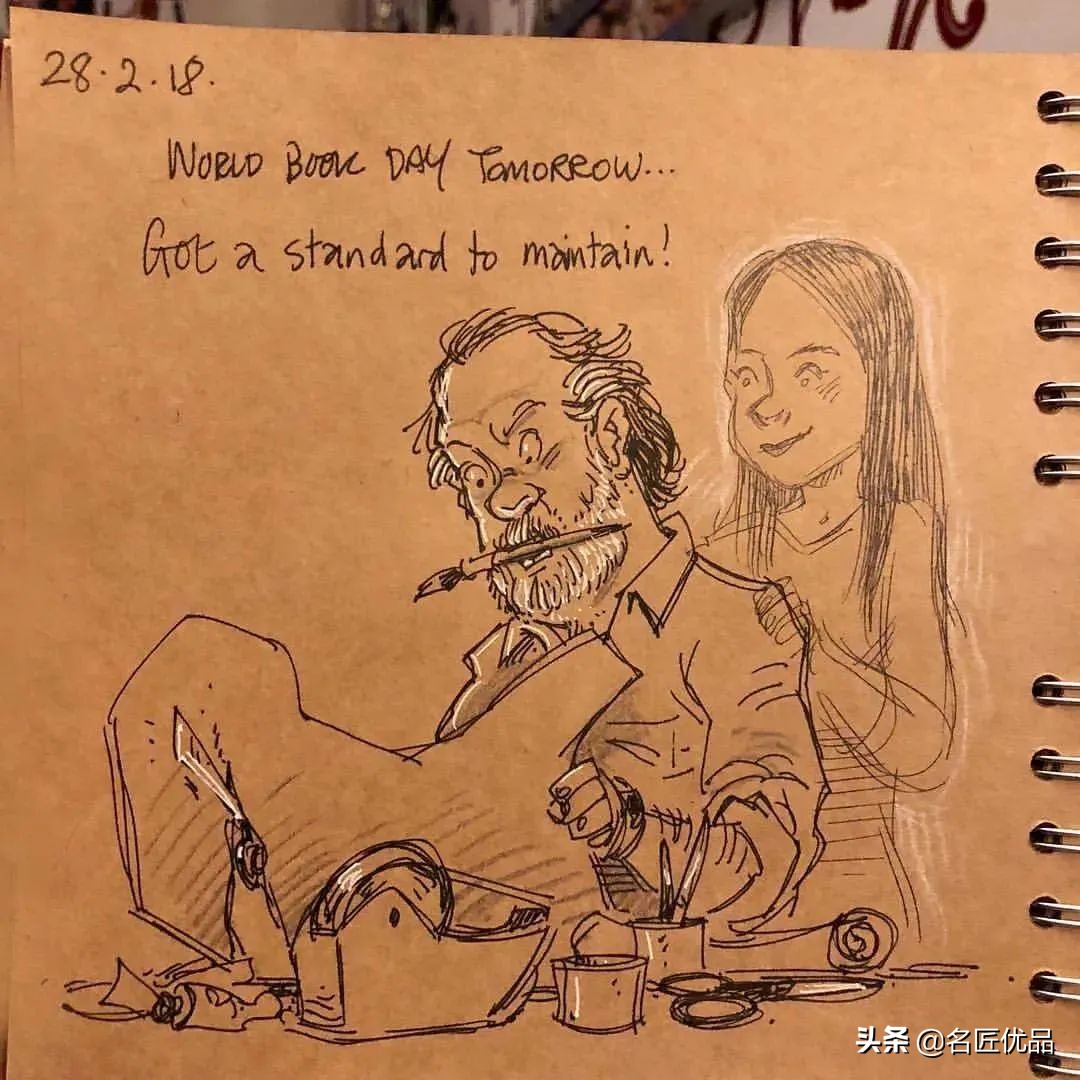 28.2.18.
WORLD BOOK DAY TOMORROW...
Got a standard to maintain!
头条 @名匠优品